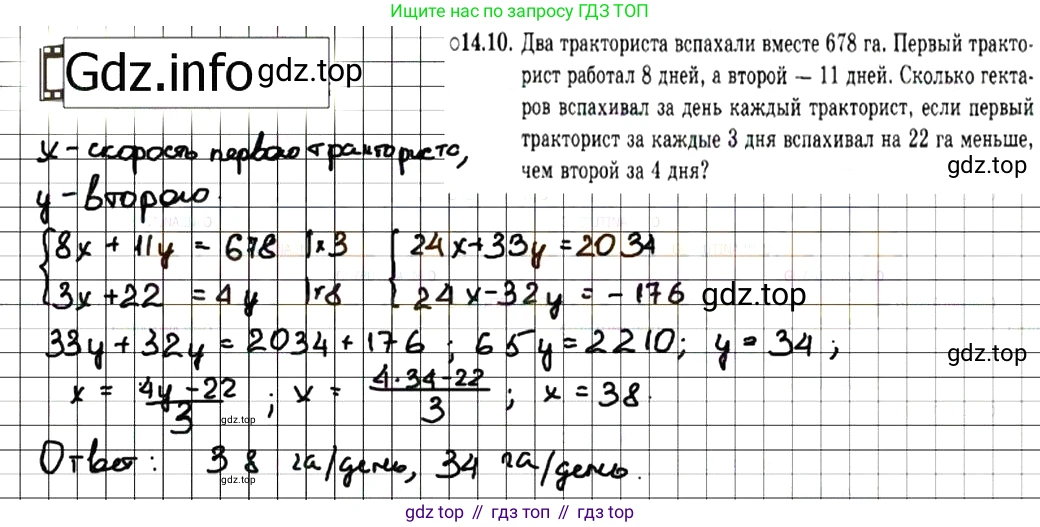 Ищите нас по запросу ГДЗ ТОП
Gdz.info gdz.top
○14.10. Два тракториста вспахали вместе 678 га. Первый тракто-
рист работал 8 дней, а второй — 11 дней. Сколько гекта-
ров вспахивал за день каждый тракторист, если первый
тракторист за каждые 3 дня вспахивал на 22 га меньше,
чем второй за 4 дня?
gdz.top
x - скорость первого тракториста,
y - второго.
{8x + 11y = 678 |×3 {24x+33y = 2034
{3x+22 = 4y |×8 {24x-32y = -176 gdz.top
33y + 32y = 2034 + 176 ; 65y = 2210; y = 34 ;
gdz.top
x = (4y-22)/3 ; x = (4·34-22)/3 ; x = 38.
gdz.top
Ответ: 38 га/день, 34 га/день.
gdz.top
gdz.top // гдз топ // gdz.top